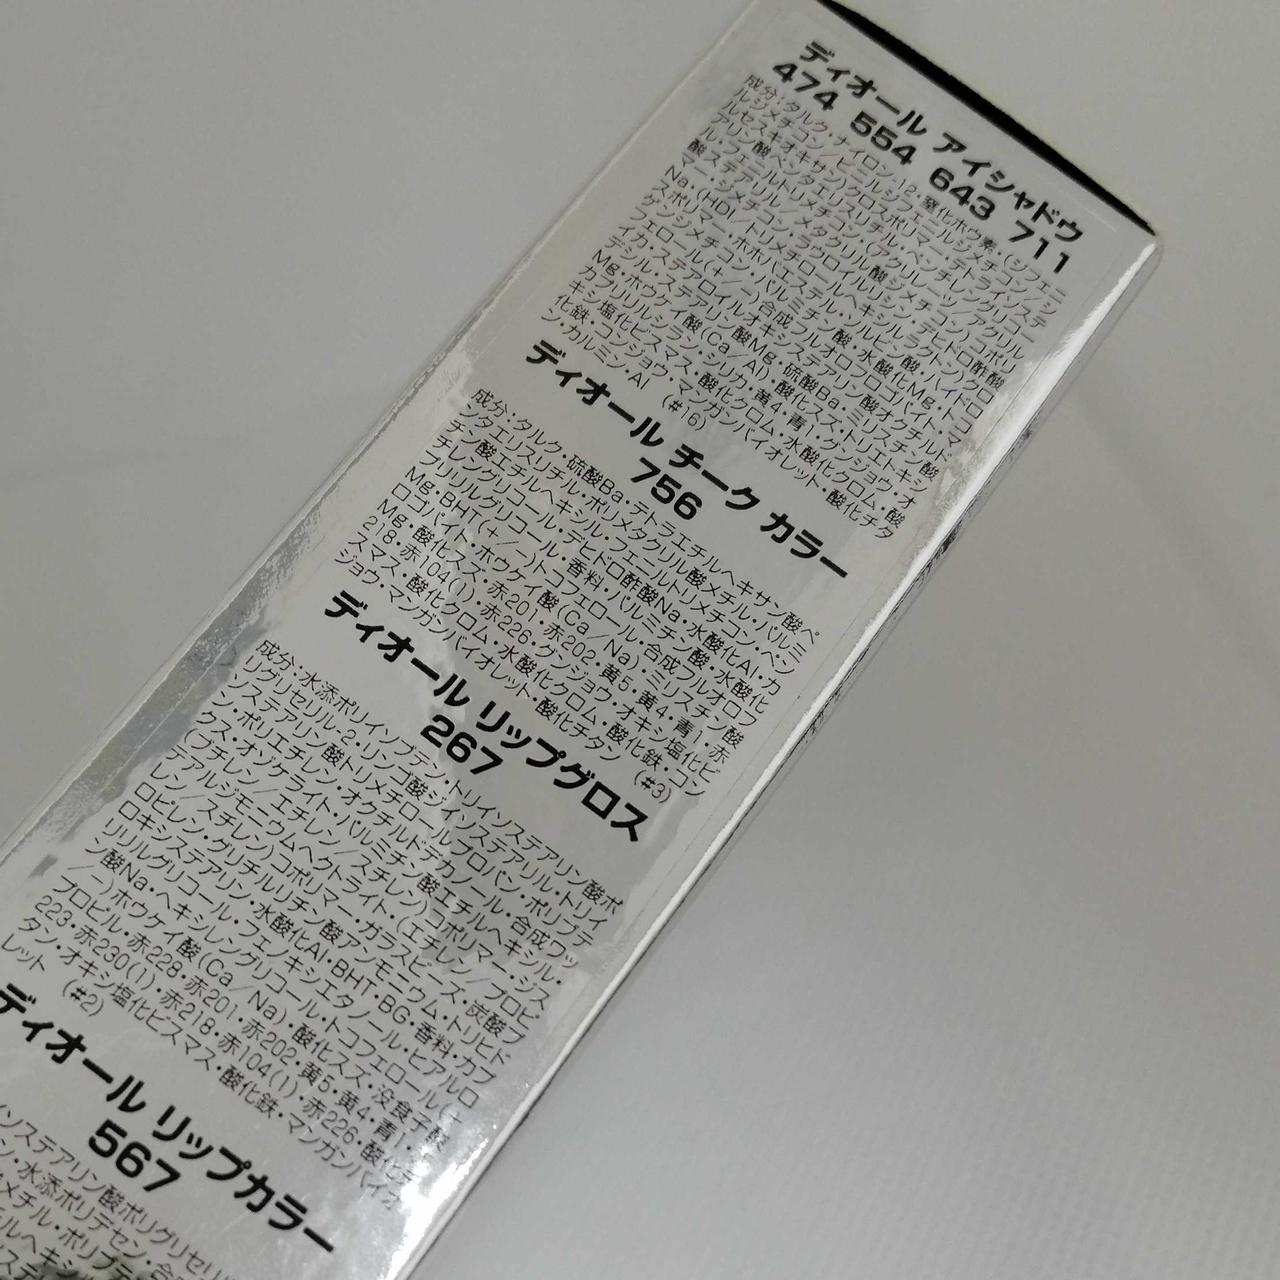 ディオール アイシャドウ
474 554 643 711
成分：タルク・ナイロン-12・窒化ホウ素・（ジフェニ
ルジメチコン／ビニルジフェニルジメチコン／シ
ルセスキオキサン）クロスポリマー・テトライソステ
アリン酸ペンタエリスリチル・ペンチレングリコー
ル・フェニルトリメチコン・（アクリレーツ／アクリル
酸ステアリル／メタクリル酸ジメチコン）コポリ
マー・ジメチコン・ラウロイルリシン・デヒドロ酢酸
Na・（HDI／トリメチロールヘキシルラクトン）クロ
スポリマー・
カプリリルシラン・シリカ・黄4・青1・グンジョウ・オ
キシ塩化ビスマス・酸化クロム・水酸化クロム・酸
化鉄・コンジョウ・マンガンバイオレット・酸化チタ
ン・カルミン・Al （#16）
ディオール チーク カラー
756
成分：タルク・硫酸Ba・テトラエチルヘキサン酸ペ
ンタエリスリチル・ポリメタクリル酸メチル・パルミ
チン酸エチルヘキシル・フェニルトリメチコン・ペン
チレングリコール・デヒドロ酢酸Na・水酸化Al・カ
プリリルグリコール・香料・パルミチン酸・水酸化
Mg・BHT（+／−）トコフェロール・合成フルオロフ
ロゴパイト・ホウケイ酸（Ca／Na）・ミリスチン酸
Mg・酸化スズ・赤201・赤202・黄5・黄4・青1・赤
218・赤104(1)・赤226・グンジョウ・オキシ塩化ビ
スマス・酸化クロム・水酸化クロム・酸化鉄・コン
ジョウ・マンガンバイオレット・酸化チタン （#3）
ディオール リップグロス
267
成分：水添ポリイソブテン・トリイソステアリン酸ポ
リグリセリル-2・リンゴ酸ジイソステアリル・トリイ
ソステアリン酸トリメチロールプロパン・ポリブテ
ン・ポリエチレン・オクチルドデカノール・合成ワッ
クス・オゾケライト・パルミチン酸エチルヘキシル・
（ブチレン／エチレン／スチレン）コポリマー・ジス
テアルジモニウムヘクトライト・（エチレン／プロピ
レン／スチレン）コポリマー・ガラスビーズ・炭酸プ
ロピレン・
ロキシステアリン・水酸化Al・BHT・BG・香料・カプ
リリルグリコール・フェノキシエタノール・ヒアルロ
ン酸Na・ヘキシレングリコール・トコフェロール（+
／−）ホウケイ酸（Ca／Na）・酸化スズ・没食子酸
プロピル・赤228・赤201・赤202・黄5・黄4・青1・赤
223・赤230(1)・赤218・赤104(1)・赤226・酸化チ
タン・オキシ塩化ビスマス・酸化鉄・マンガンバイオ
レット （#2）
ディオール リップカラー
567